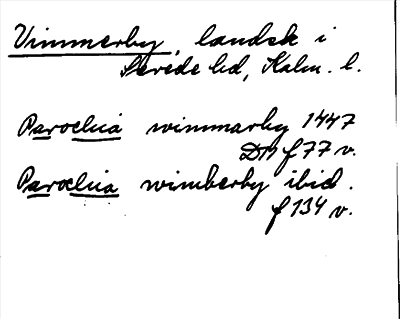 Vimmerby, landsk i
Sevede hd, Kalm. l.
Parochia wimmarby 1447
D11 f 77 v.
Parochia wimberby ibid.
f 134 v.